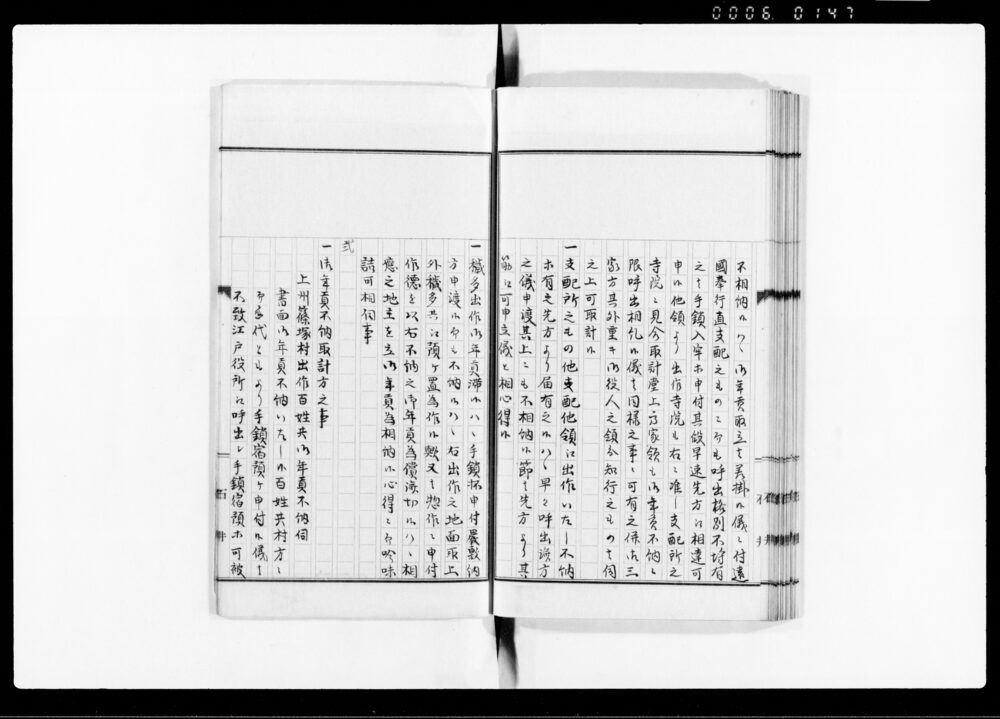 0006 0147
不相納候ハヽ御年貢取立ニ差掛候儀ニ付遠
國奉行直支配之ものニ而も呼出格別不埒有
之ハ手鎖入牢ホ申付其段早速先方江相達可
申候他領より出作寺院も右ニ准し支配所之
寺院ニ見合取計堂上方家領も御年貢不納ニ
限呼出相糺候儀ハ同様之事ニ可有之併御三
家方其外重キ御役人之領分知行之ものハ伺
之上可取計候
一支配所之もの他支配他領江出作いたし不納
ホ有之先方より届有之候ハヽ早々呼出済方
之儀申渡其上ニも不相納候節ハ先方より其
筋江可申立儀と相心得候
一穢多出作御年貢滞候ハヽ手鎖抔申付嚴敷納
方申渡候而も不納候ハヽ右出作之地面取上
外穢多共江預ケ置為作候歟又ハ惣作ニ申付
作徳を以右不納之御年貢為償済切候ハヽ相
應之地主を立御年貢為相納候心得ニ而吟味
詰可相伺事
弐
一御年貢不納取計方之事
上州篠塚村出作百姓共御年貢不納伺
書面御年貢不納いたし候百姓共村方ニ
而手代ともより手鎖宿預ケ申付候儀ハ
不致江戸役所江呼出し手鎖宿預ホ可被